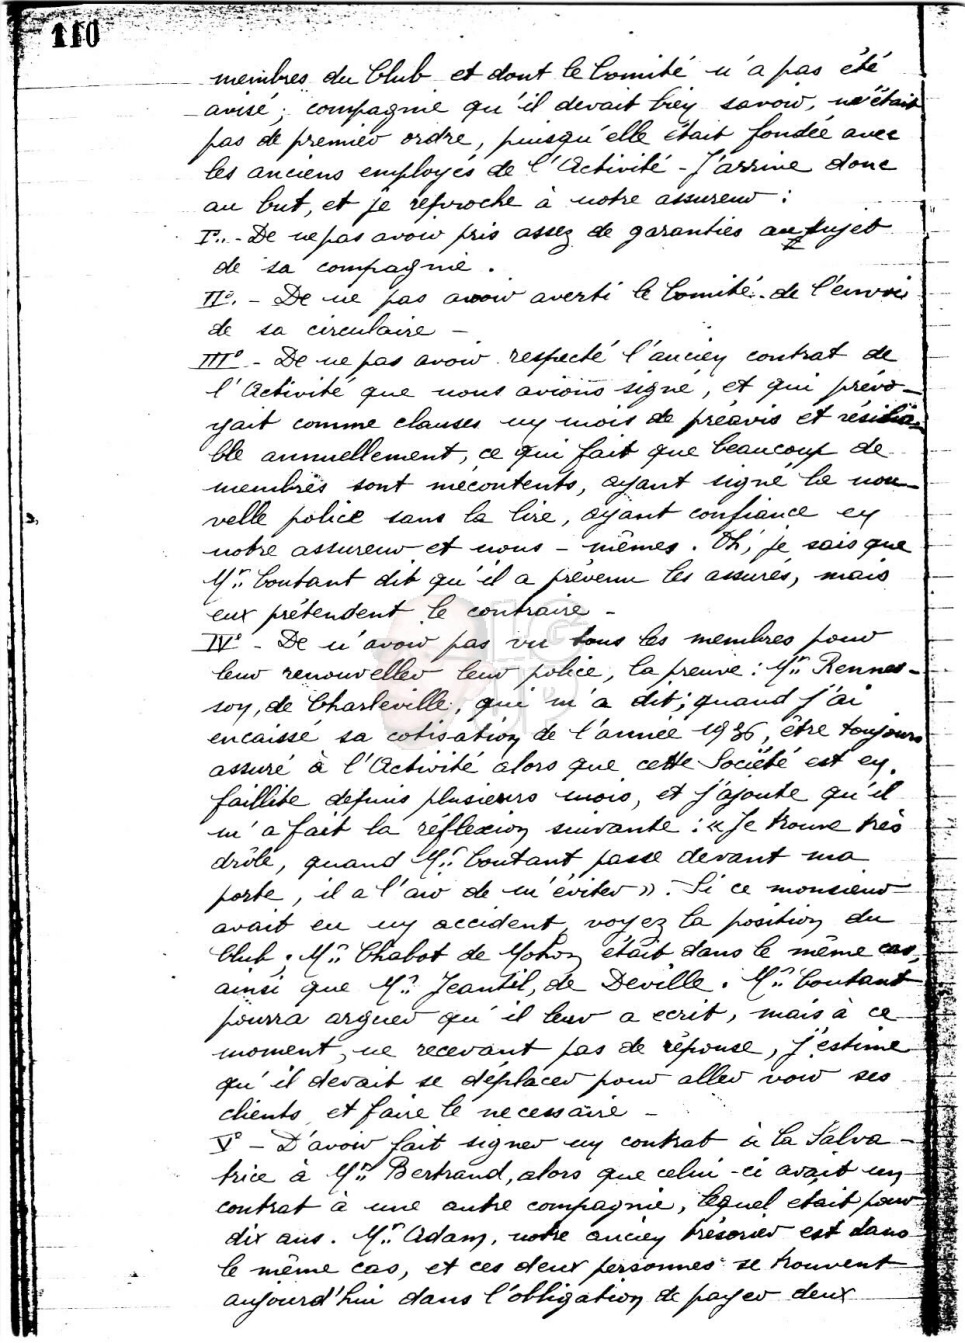 110
membres du Club et dont le Comité n'a pas été
avisé ; compagnie qu'il devait bien savoir, n'était
pas de premier ordre, puisqu'elle était fondée avec
les anciens employés de l'Activité - J'arrive donc
au but, et je reproche à notre assureur :
I°. - De ne pas avoir pris assez de garanties au sujet
de sa compagnie.
II°. - De ne pas avoir averti le Comité de l'envoi
de sa circulaire -
III° - De ne pas avoir respecté l'ancien contrat de
l'Activité que nous avions signé, et qui prévo-
yait comme clauses un mois de préavis et résilia-
ble annuellement, ce qui fait que beaucoup de
membres sont mécontents, ayant signé la nou-
velle police sans la lire, ayant confiance en
notre assureur et nous - mêmes. Oh, je sais que
Mr. Coutant dit qu'il a prévenu les assurés, mais
eux prétendent le contraire -
IV° - De n'avoir pas vu tous les membres pour
leur renouveller leur police, la preuve : Mr. Rennes-
son, de Charleville, qui m'a dit, quand j'ai
encaissé sa cotisation de l'année 1936, être toujours
assuré à l'Activité alors que cette Société est en
faillite depuis plusieurs mois, et j'ajoute qu'il
m'a fait la réflexion suivante : « Je trouve très
drôle, quand Mr. Coutant passe devant ma
porte, il a l'air de m'éviter ». Si ce monsieur
avait eu un accident, voyez la position du
Club. Mr. Chabot de Mohon était dans le même cas,
ainsi que Mr. Jeantil, de Deville. Mr. Coutant
pourra arguer qu'il leur a écrit, mais à ce
moment, ne recevant pas de réponse, j'estime
qu'il devait se déplacer pour aller voir ses
clients et faire le necessaire -
V° - D'avoir fait signer un contrat à la Salva-
trice à Mr. Bertrand, alors que celui-ci avait un
contrat à une autre compagnie, lequel était pour
dix ans. Mr. Adam, notre ancien trésorier est dans
le même cas, et ces deux personnes se trouvent
aujourd'hui dans l'obligation de payer deux
LG
UP